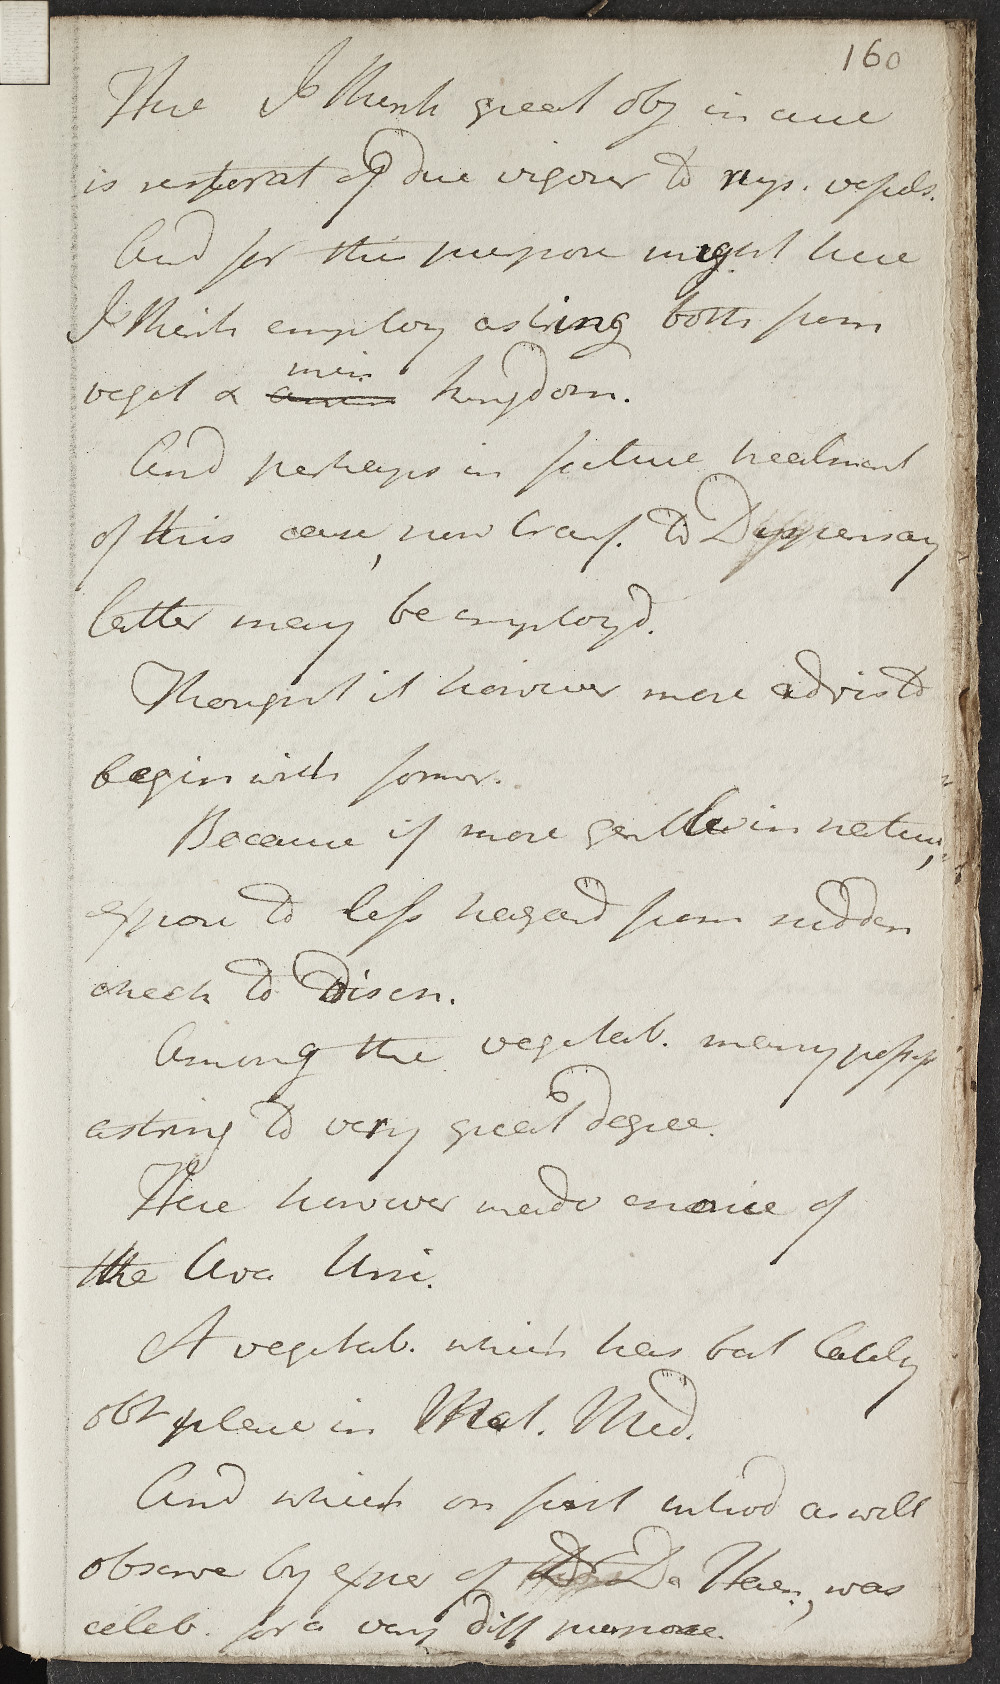 160
Here I think great obj in cure
is restorat of due vigour to resp. vessels.
And for this purpose might here
I think employ astring both from
veget & min anim kingdom.
And perhaps in future treatment
of this case, now transf. to Dispensary
latter may be employd.
Thought it however more advis to
begin with former.
Because if more gentle in nature,
expose to less hazard from sudden
check to Disch.
Among the vegetab. many possess
astring to very great degree.
Here however made choice of
the Uva Ursi.
A vegetab. which has but lately
obt place in Mat. Med.
And which on first introd as well
observe by exper of De Haen, was
celeb. for a very diff purpose.